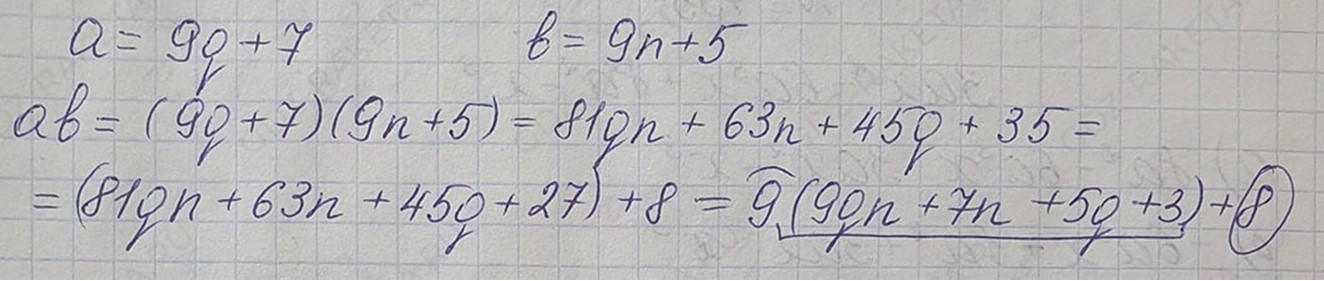 a = 9q + 7 в = 9n + 5
aв = (9q + 7)(9n + 5) = 81qn + 63n + 45q + 35 =
= (81qn + 63n + 45q + 27) + 8 = 9(9qn + 7n + 5q + 3) + 8